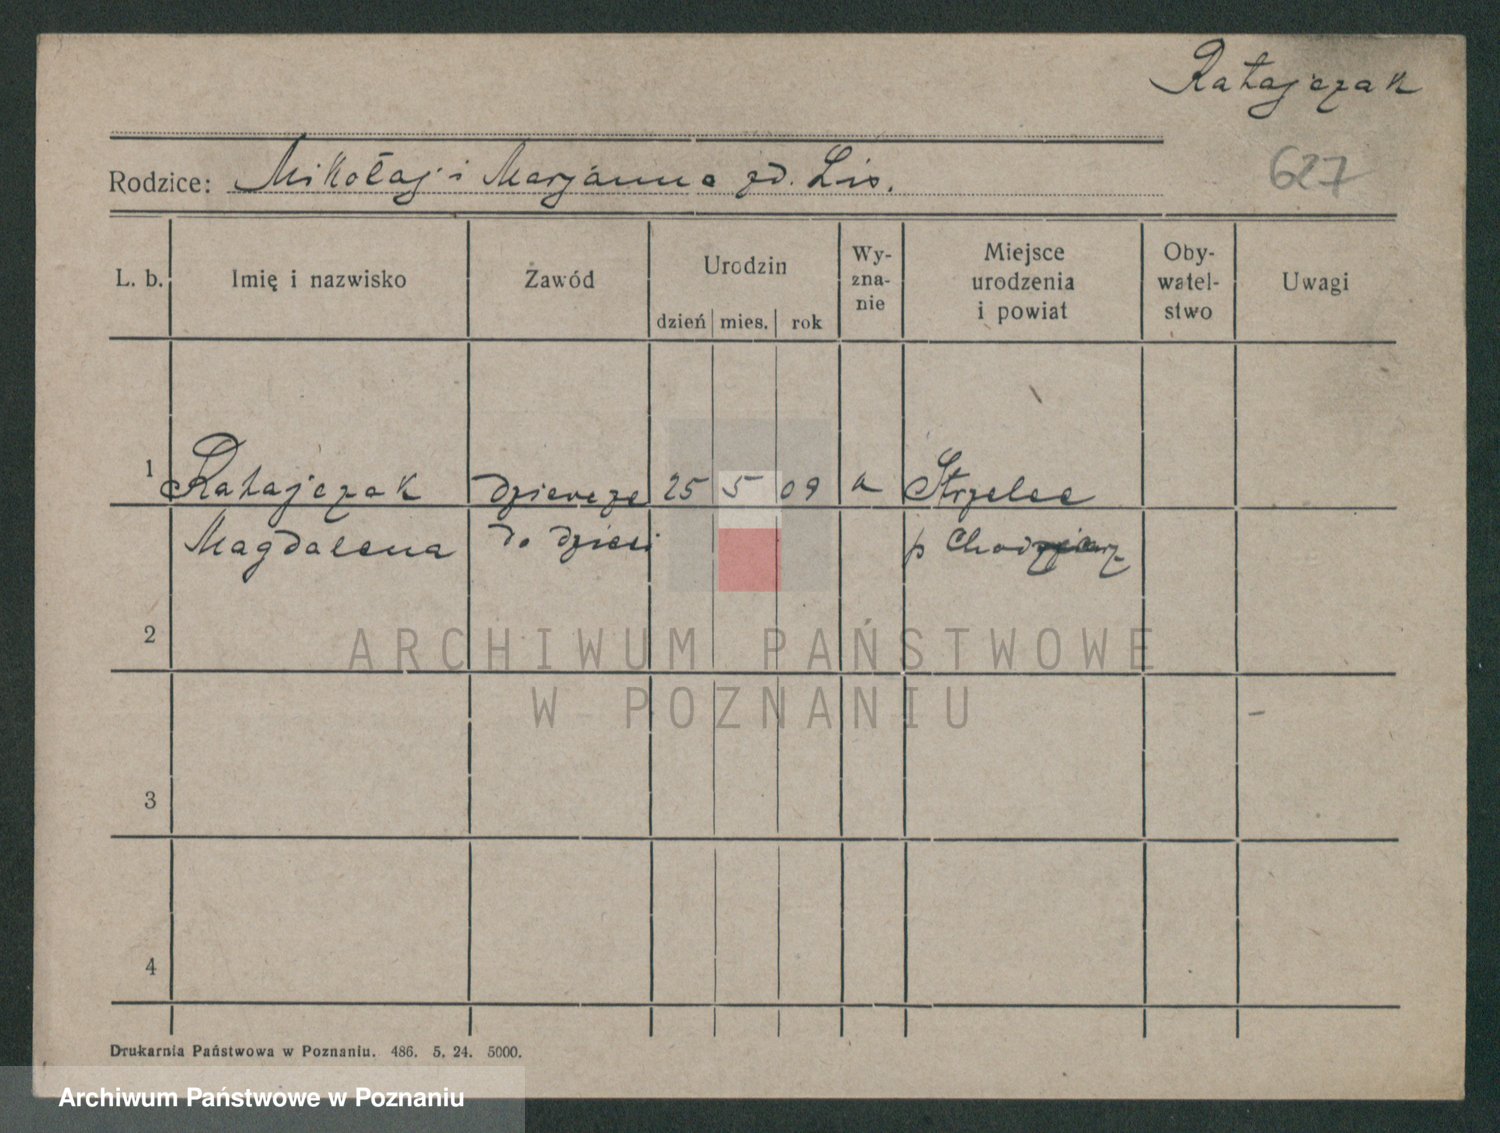 Ratajczak
Rodzice: Mikołaj i Marjanna zd. Lis.
627
L. b.
Imię i nazwisko
Zawód
Urodzin
dzień mies. rok
Wy-
zna-
nie
Miejsce
urodzenia
i powiat
Oby-
watel-
stwo
Uwagi
1 Ratajczak dziewczę 25 5 09 k Strzelce
Magdalena do dzieci p Chodzież
2
3
4
ARCHIWUM PAŃSTWOWE
W POZNANIU
Drukarnia Państwowa w Poznaniu. 486. 5. 24. 5000.
Archiwum Państwowe w Poznaniu